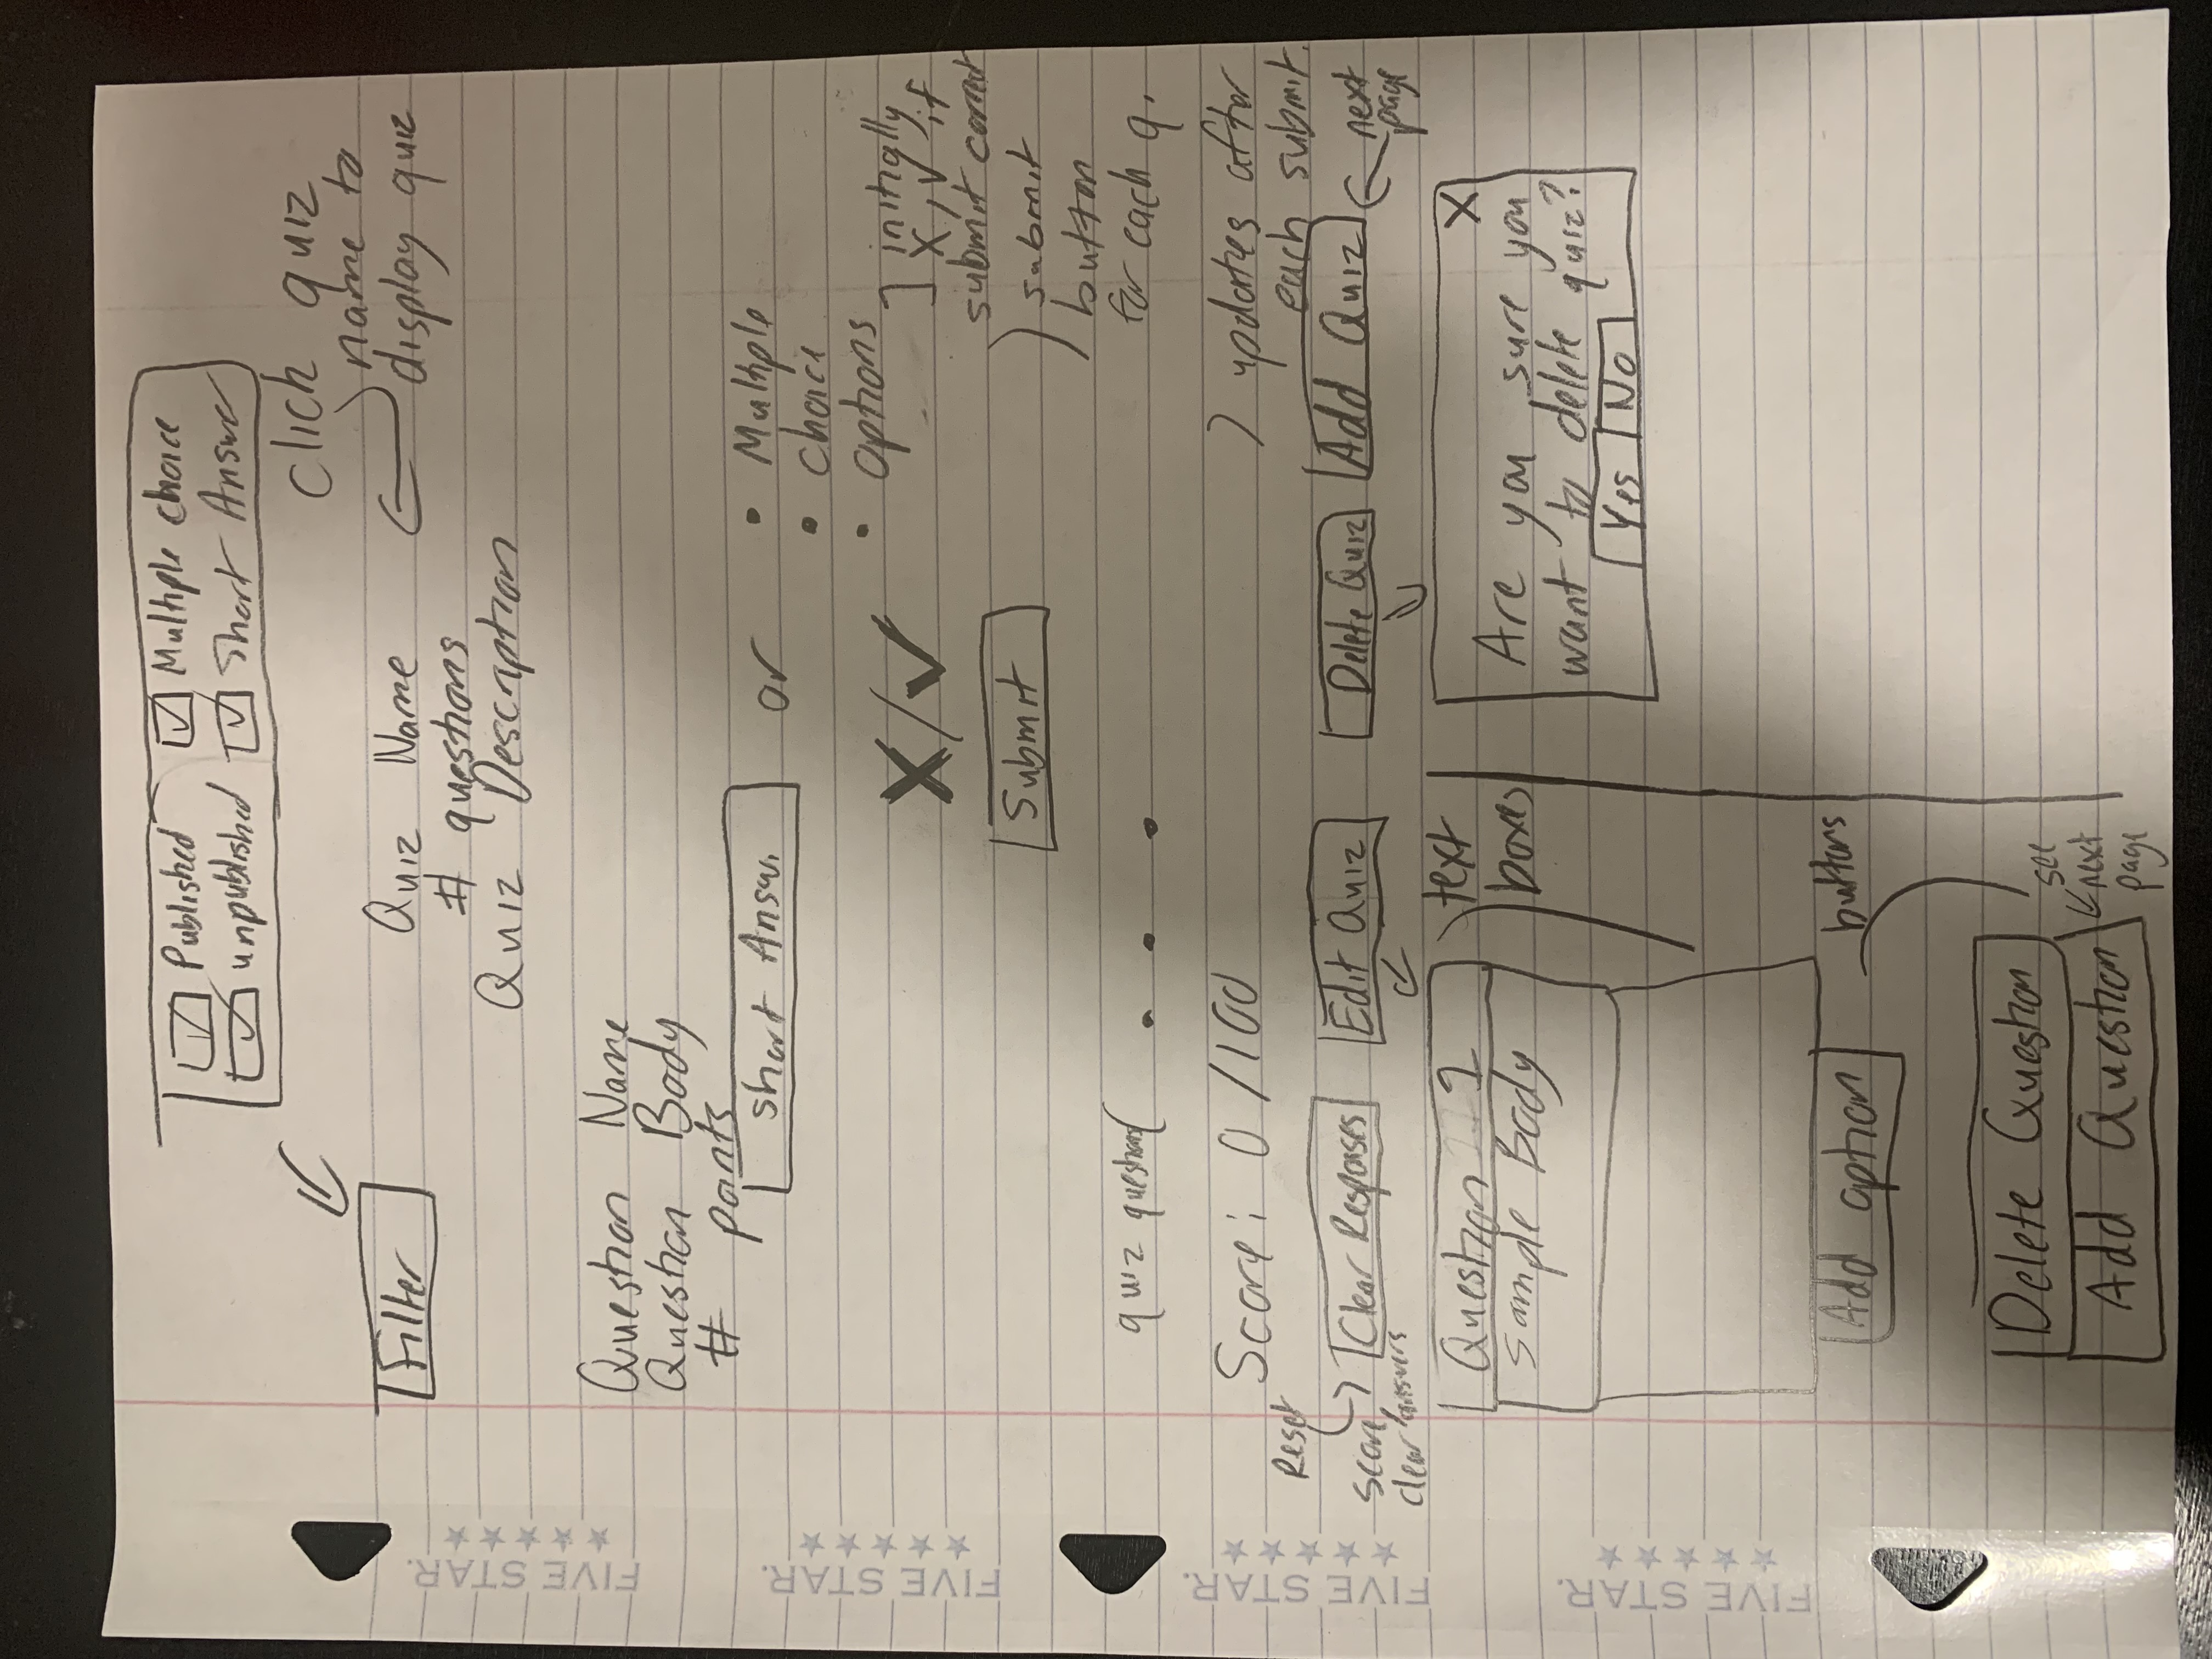 Published
Multiple choice
unpublished
Short Answer
click quiz
name to
display quiz
Filter
Quiz Name
# questions
Quiz Description
Question Name
Question Body
# points
short Answ.
or
• Multiple
• choice
• options
X/✓
initially
X, ✓ if
submit correct
Submit
submit
button
for each q.
quiz questions
. . .
Score: 0/100
updates after
each submit.
Reset
score
clear answers
Clear Responses
Edit Quiz
Delete Quiz
Add Quiz
next
page
Question 1
Sample Body
text
boxes
X
Are you sure you
want to delete quiz?
Yes
No
Add option
buttons
Delete Question
Add Question
see
next
page
FIVE STAR.
FIVE STAR.
FIVE STAR.
FIVE STAR.